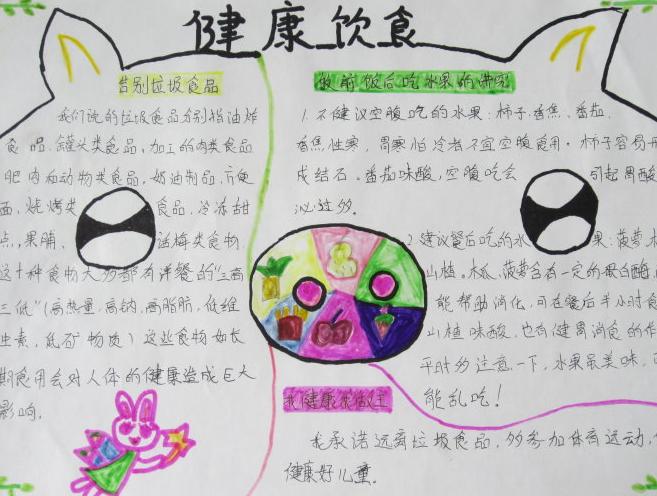 健康饮食
告别垃圾食品
我们说的垃圾食品分别指油炸
食品、罐头类食品、加工的肉类食品
肥肉和动物类食品、奶油制品、方便
面、烧烤类食品、冷冻甜
点、果脯、话梅类食物
这十种食物大多都有洋餐的“三高
三低”（高热量、高钠、高脂肪、低维
生素、低矿物质）这些食物如长
期食用会对人体的健康造成巨大
影响。
饭前饭后吃水果的讲究
1.不健议空腹吃的水果：柿子、香焦、番茄、
香焦性寒，胃寒怕冷者不宜空腹食用。柿子容易形
成结石。番茄味酸，空腹吃会引起胃酸
泌过多。
2.建议餐后吃的水果：菠萝、
山楂。木瓜、菠萝含有一定的蛋白酶
能帮助消化，可在餐后半小时食
山楂味酸，也有健胃消食的作
平时多注意一下，水果虽美味，
能乱吃！
我健康我做主
我承诺远离垃圾食品，多参加体育运动，
健康好儿童。